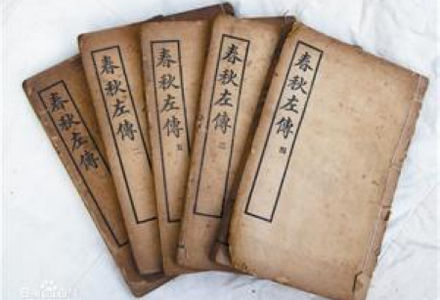 春秋左傳
春秋左傳
春秋左傳
春秋左傳
春秋左傳